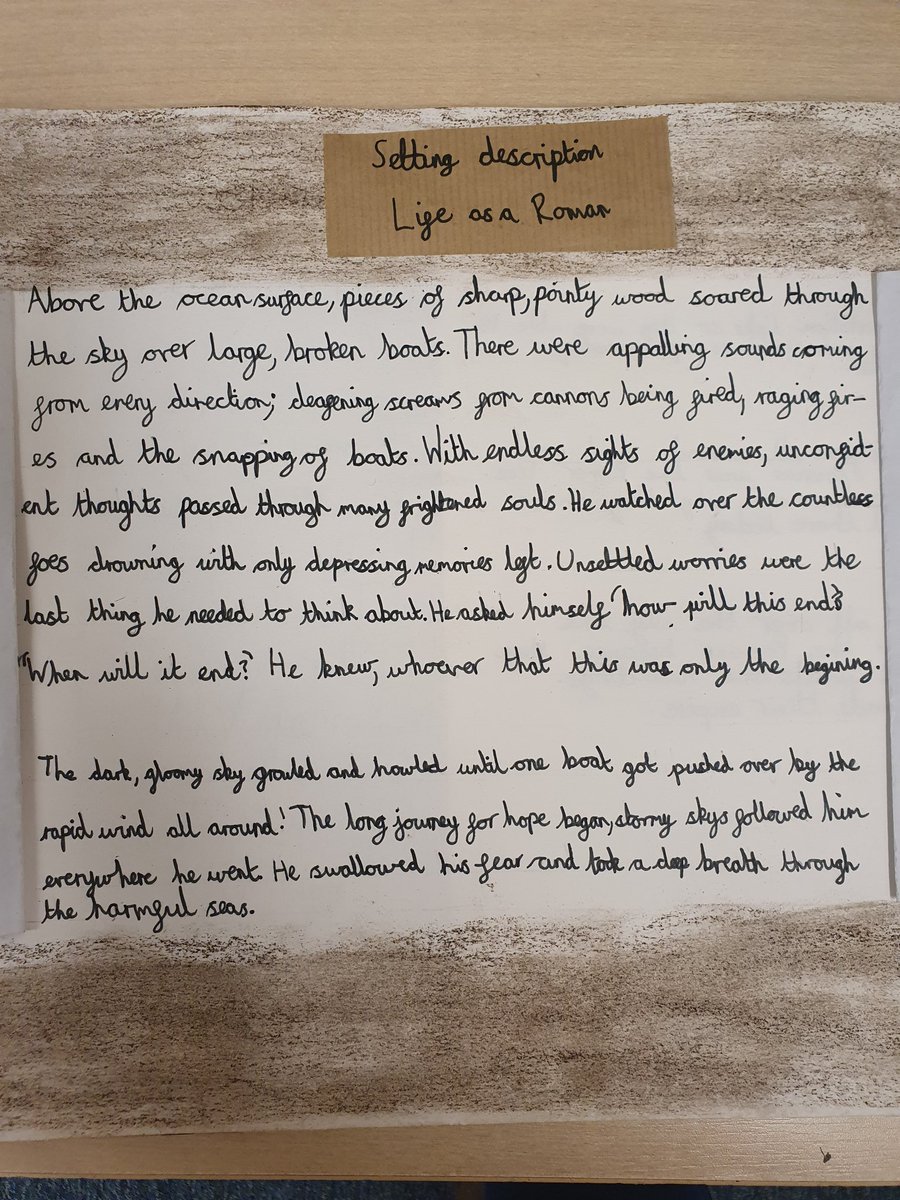 Setting description
Life as a Roman
Above the ocean surface, pieces of sharp, pointy wood soared through
the sky over large, broken boats. There were appalling sounds coming
from every direction; deafening screams from cannons being fired, raging fir-
es and the snapping of boats. With endless sights of enemies, unconfid-
ent thoughts passed through many frightened souls. He watched over the countless
foes drowning with only depressing memories left. Unsettled worries were the
last thing he needed to think about. He asked himself "how will this end?
"When will it end?" He knew, whoever that this was only the begining.
The dark, gloomy sky growled and howled until one boat got pushed over by the
rapid wind all around! The long journey for hope began, stormy skys followed him
everywhere he went. He swallowed his fear and took a deep breath through
the harmful seas.